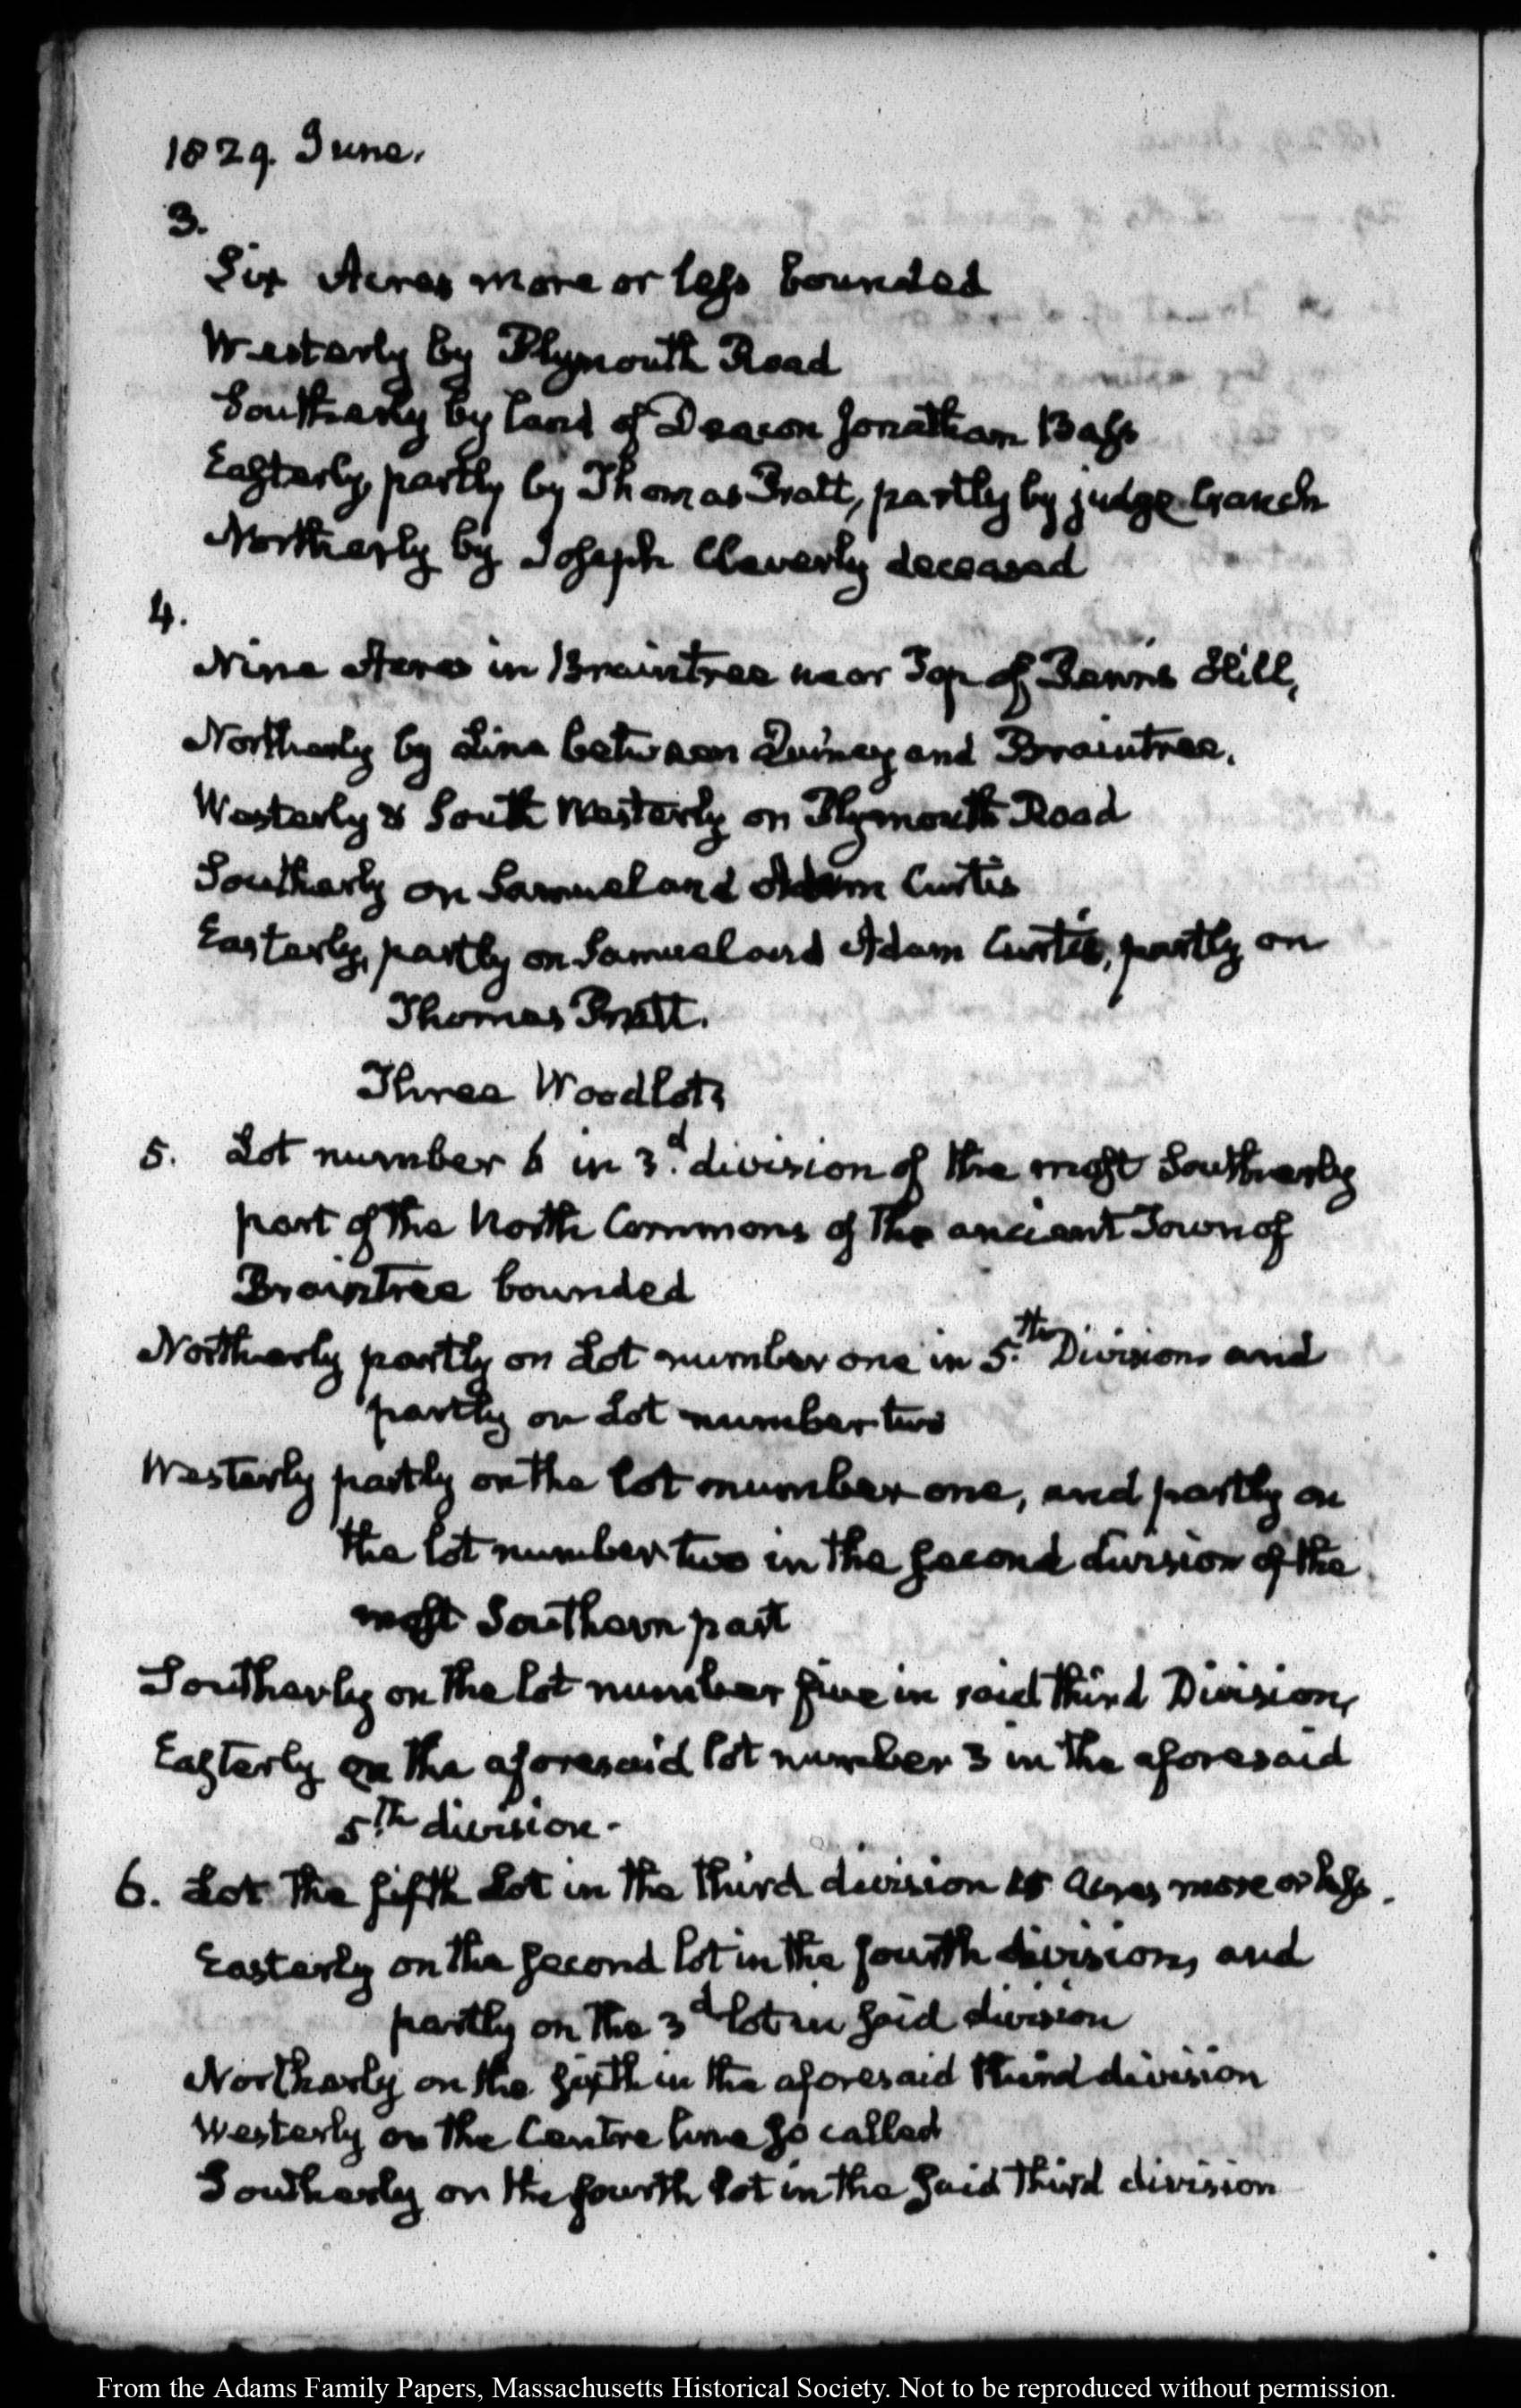 1829. June.
3.
Six Acres more or less bounded
Westerly by Plymouth Road
Southerly by land of Deacon Jonathan Bass
Easterly, partly by Thomas Pratt, partly by judge Cranch
Northerly by Joseph Cleverly deceased
4.
Nine Acres in Braintree near Top of Penn's Hill,
Northerly by Line between Quincy and Braintree.
Westerly & South Westerly on Plymouth Road
Southerly on Samuel and Adam Curtis
Easterly, partly on Samuel and Adam Curtis, partly on
Thomas Pratt.
Three Woodlots
5. Lot number 6 in 3.d division of the most Southerly
part of the North Commons of the ancient Town of
Braintree bounded
Northerly partly on Lot number one in 5.th Division and
partly on Lot number two
Westerly partly on the lot number one, and partly on
the lot number two in the second division of the
most Southern part
Southerly on the lot number five in said third Division,
Easterly on the aforesaid lot number 3 in the aforesaid
5th division.
6. Lot the fifth Lot in the third division 15 acres more or less.
Easterly on the second lot in the fourth division, and
partly on the 3d lot in said division
Northerly on the sixth in the aforesaid third division
Westerly on the Centre line so called
Southerly on the fourth lot in the said third division
From the Adams Family Papers, Massachusetts Historical Society. Not to be reproduced without permission.